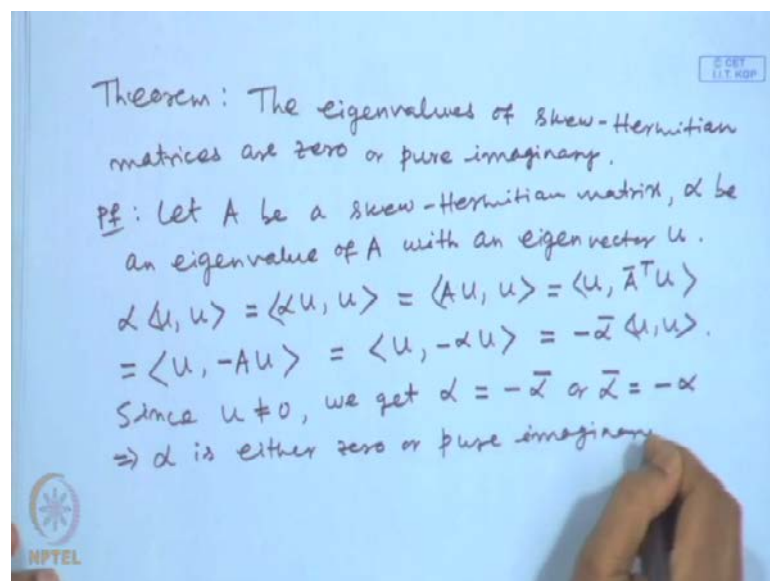 © CET
I.I.T. KGP
Theorem : The eigenvalues of skew-Hermitian
matrices are zero or pure imaginary.
Pf : Let A be a skew-Hermitian matrix, α be
an eigenvalue of A with an eigenvector u.
α⟨u, u⟩ = ⟨αu, u⟩ = ⟨Au, u⟩ = ⟨u, Āᵀu⟩
= ⟨u, -Au⟩ = ⟨u, -αu⟩ = -ᾱ⟨u, u⟩.
Since u ≠ 0, we get α = -ᾱ or ᾱ = -α
⇒ α is either zero or pure imaginary
NPTEL